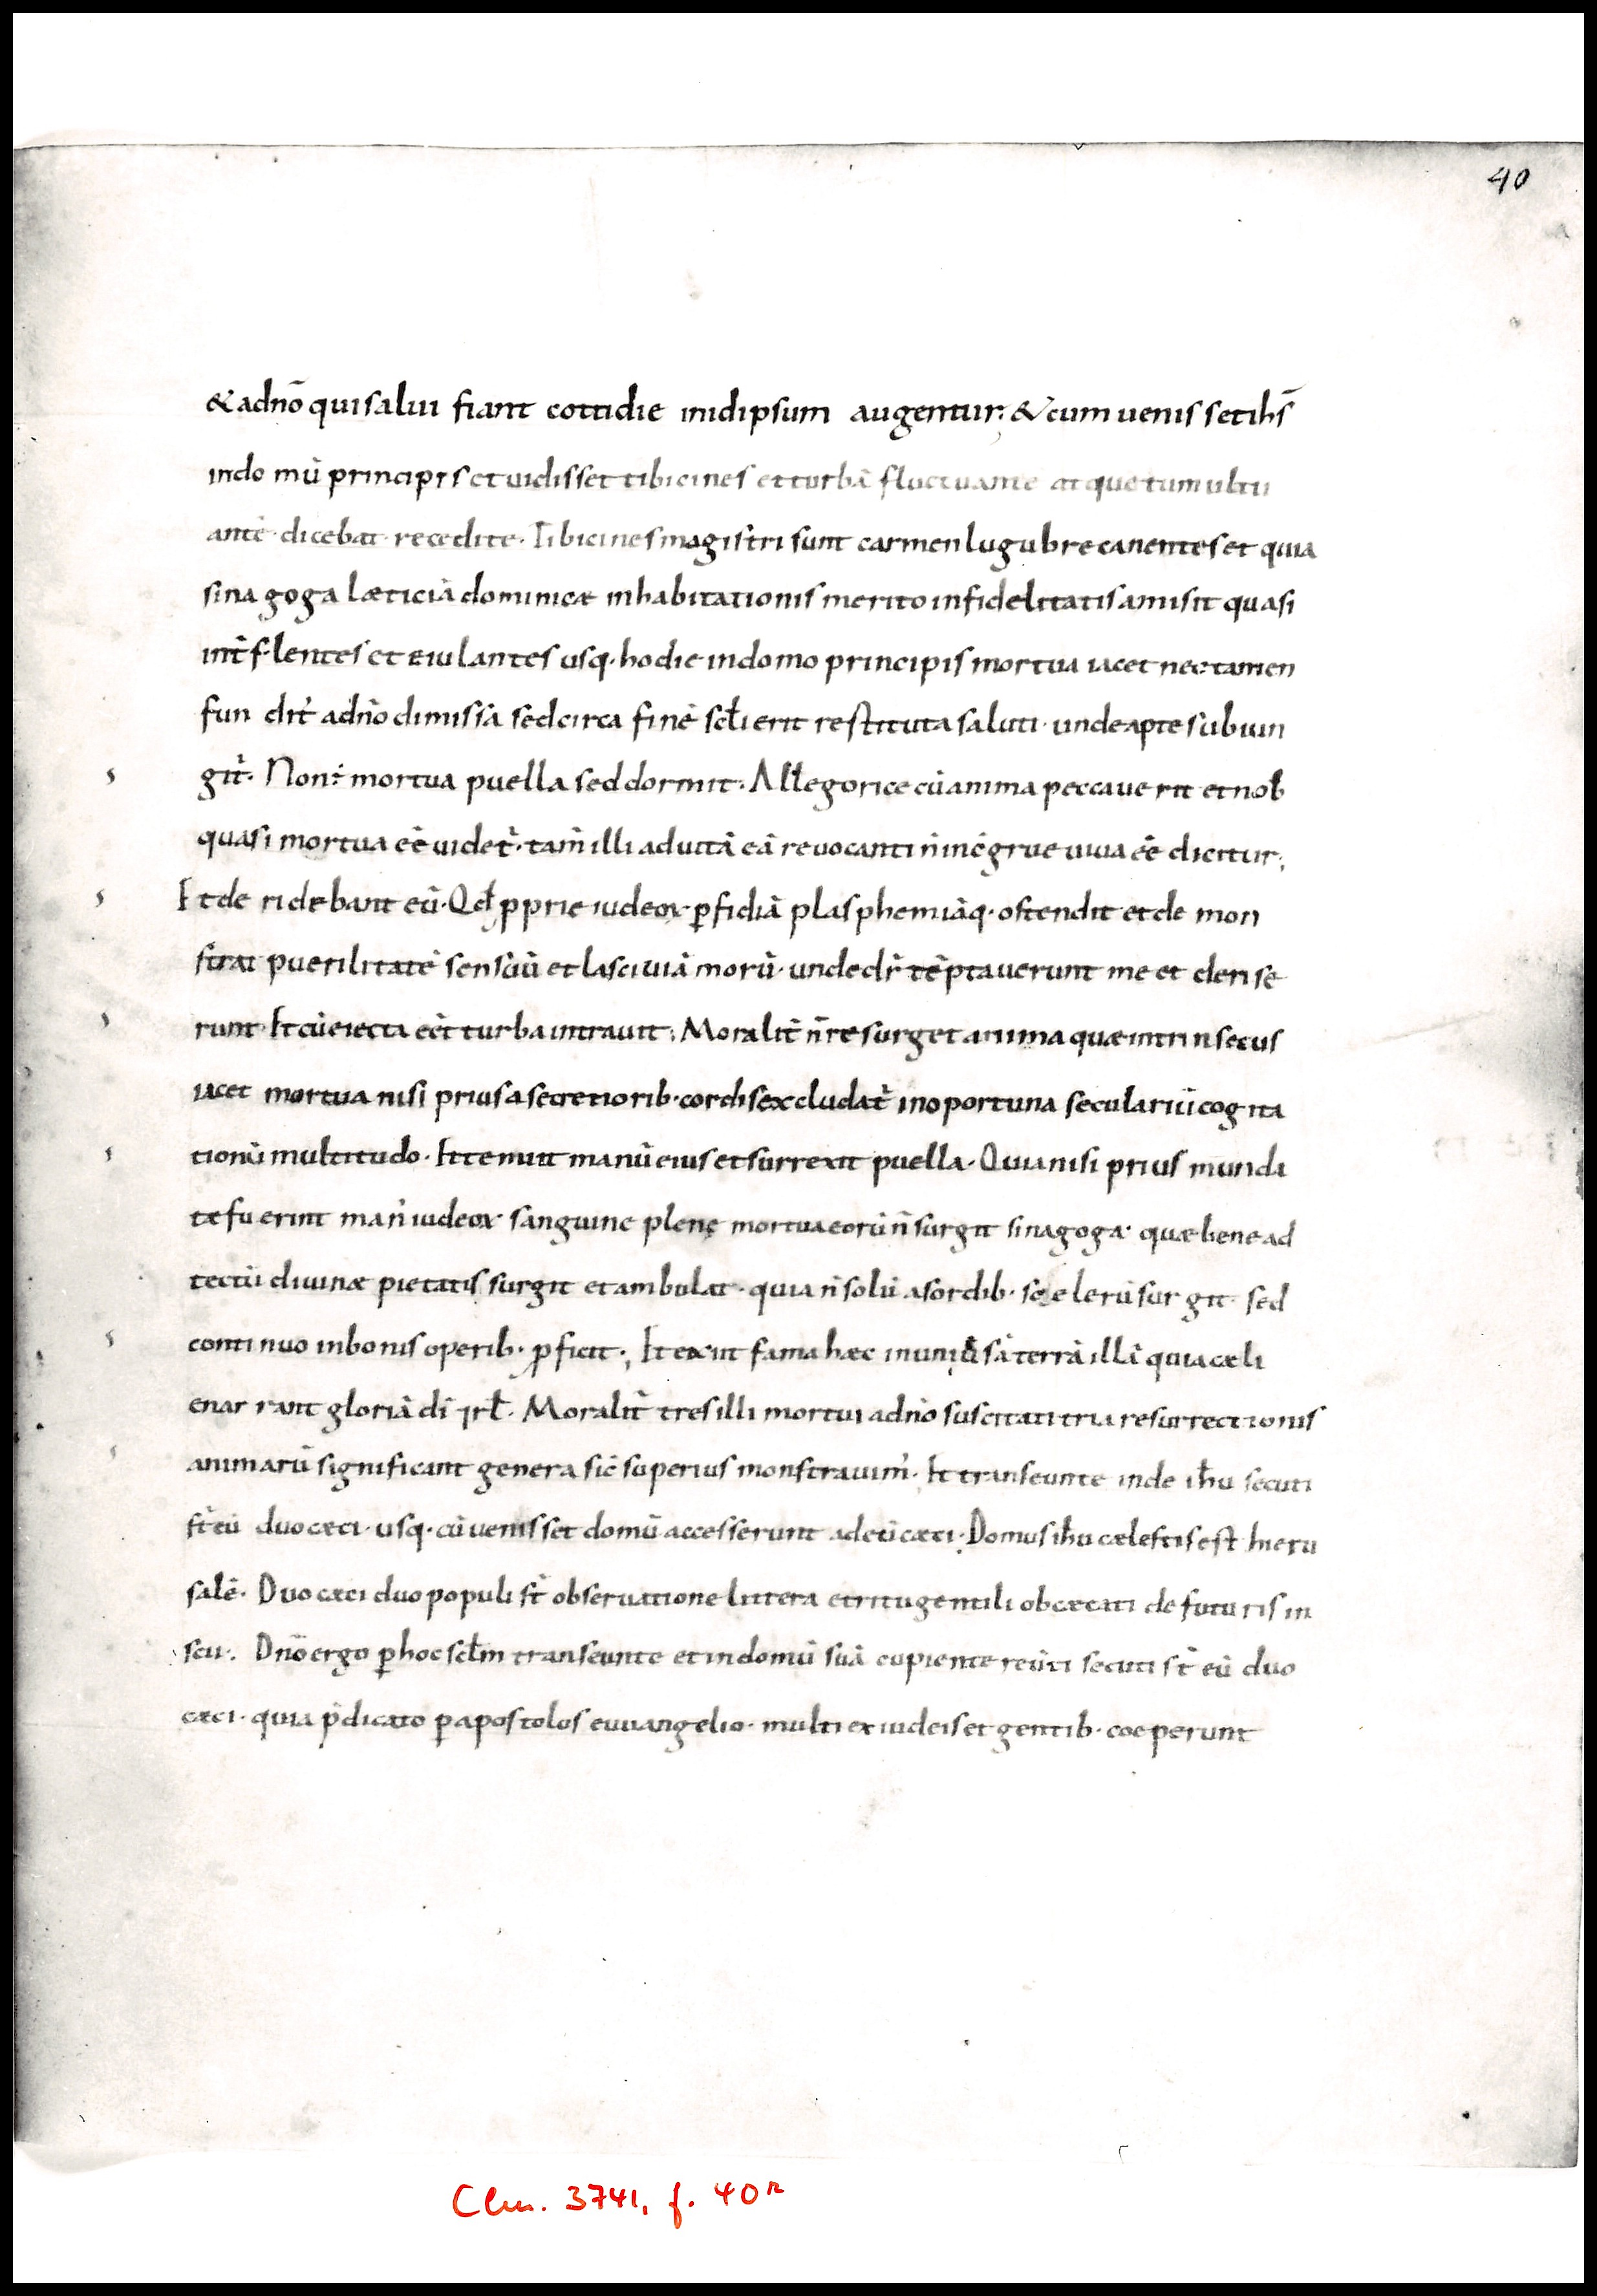 40
& adnō qui salui fiant cottidie inidipsum augentur. & cum uenisset ihs̄
indo mū principis et uidisset tibicines et turbā fluctuante atque tumultu
antē · dicebat · recedite · Tibicines magistri sunt carmen lugubre canentes et quia
sina goga læticiā dominicæ inhabitationis merito infidelitatis amisit quasi
int̄ flentes et eiulantes usq · hodie indomo principis mortua iacet nec tamen
fun dit̄ adnō dimissā sed circa finē scl̄i erit restituta saluti · unde apte subiun
git̄ · Non ÷ mortua puella sed dormit · Allegorice cū anima peccauerit et nob
quasi mortua eē uidet̄ · tam̄ illi aduitā eā reuocanti n̄ incgrue uiua eē dicitur;
Et de ridebant eū · Qd̄ pprie iudeoꝝ · ꝑfidiā plasphemiāq · ostendit et de mon
strat puerilitatē sensuū et lasciuiā morū · unde dr̄ tēptauerunt me et derise
runt · Et cū eiecta eēt turba intrauit · Moralit̄ n̄ resurget anima quæ intrinsecus
iacet mortua nisi prius a secretiorib · cordis excludat̄ inoportuna seculariū cogita
tionū multitudo · Et tenuit manū eius et surrexit puella · Quia nisi prius munda
tæ fuerint man̄ iudeoꝝ sanguine plenę mortua eorū n̄ surgit sinagoga · quæ bene ad
tectū diuinæ pietatis surgit et ambulat · quia n̄ solū a sordib · scelerū surgit · sed
continuo in bonis operib · ꝓficit · Et exiit fama hæc in uniūsā terrā illā quia cæli
enar rant gloriā dī · Moralit̄ tres illi mortui adnō suscitati tria resurrectionis
animarū significant genera sic̄ superius monstrauim̄ · Et transeunte inde ihū secuti
st̄ eū duo cæci · usq · cū uenisset domū accesserunt ad eū cæci · Domus ihū cælestis est hieru
salē · Duo cæci duo populi st̄ obseruatione littera et ritu gentili obcæcati de futuris in
scii · Dnō ergo ꝑ hoc scl̄m transeunte et in domū suā cupiente reūti secuti st̄ eū duo
cæci · quia p̄dicato ꝑ apostolos euuangelio · multi ex iudeis et gentib · coeperunt
Clm. 3741, f. 40r